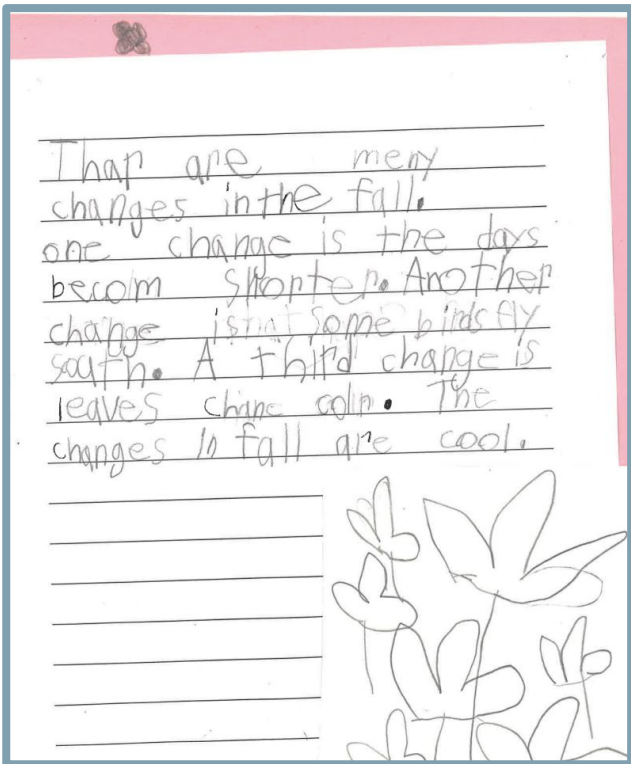 Thar are meny
changes in the fall.
one change is the days
becom shorter. Another
change is that some birds fly
south. A third change is
leaves chane colir. The
changes in fall are cool.